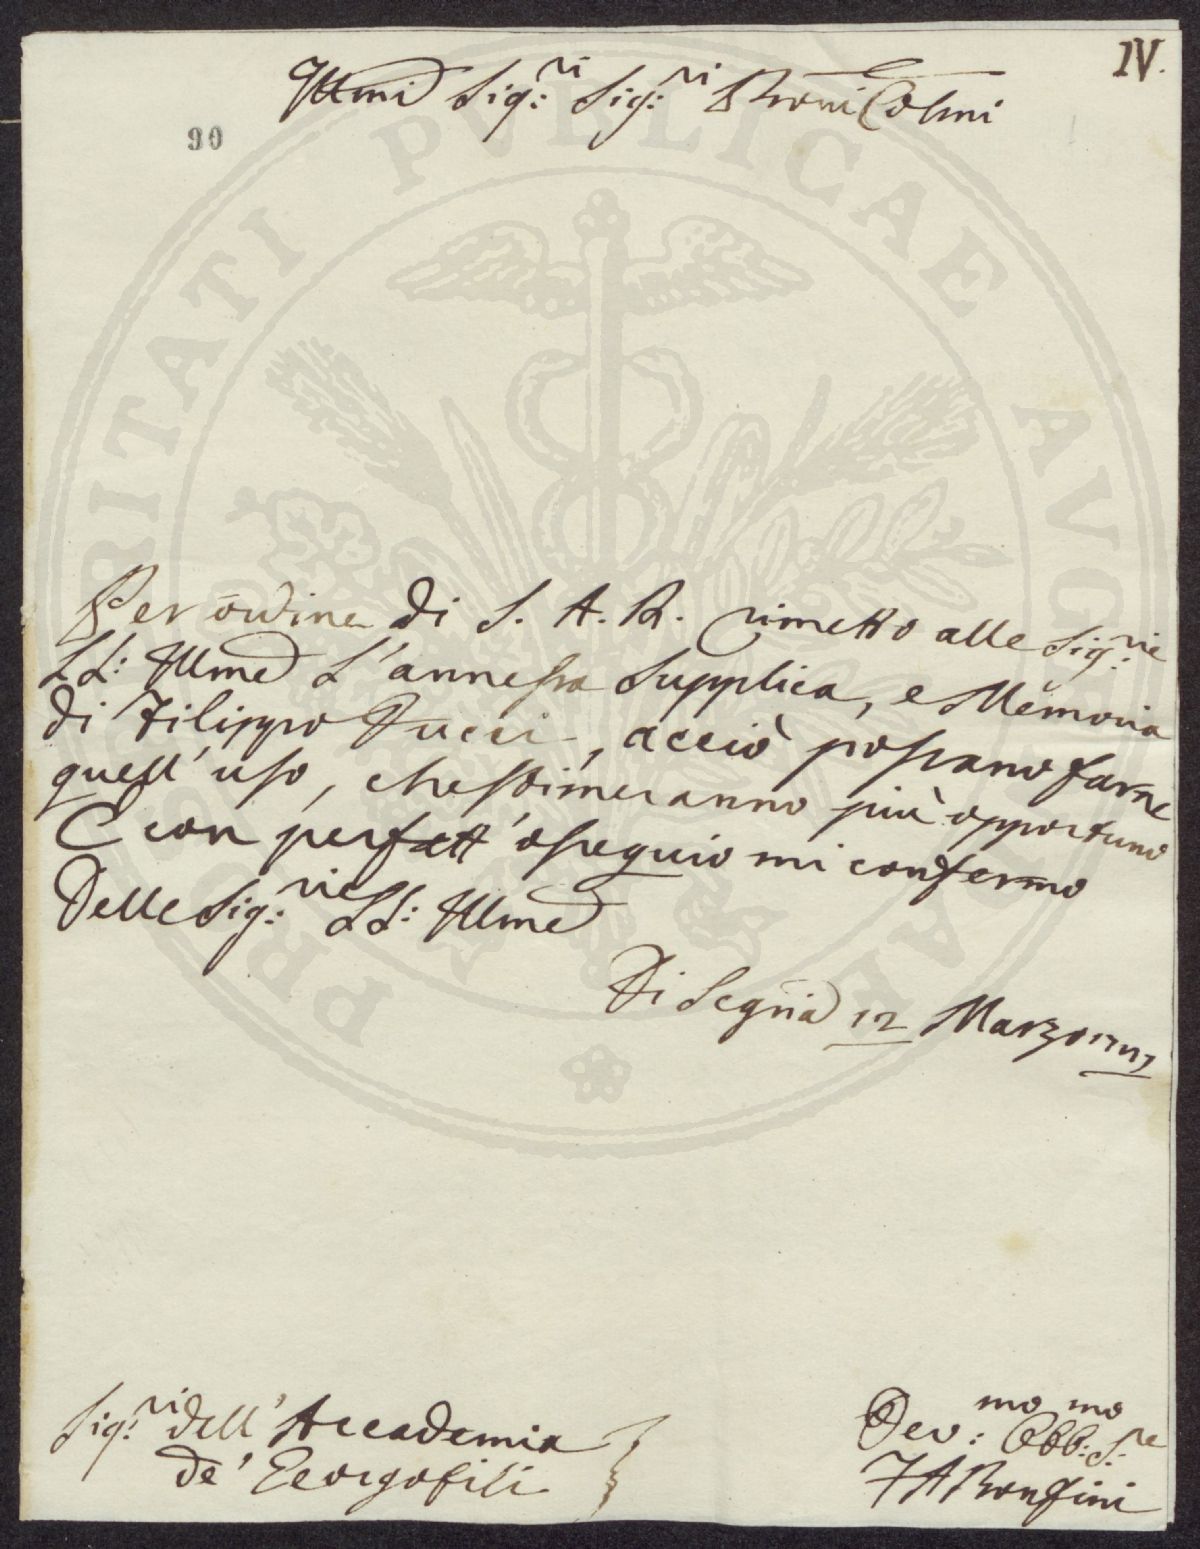 IV.
Illmi Sig:ri Sig:ri Proni Colmi
90
Per ordine di S. A. R. rimetto alle Sig:rie
LL: Illme l'annessa Supplica, e Memoria
di Filippo Pucci, acciò possano farne
quell' uso, che stimeranno più opportuno
E con perfett' ossequio mi confermo
Delle Sig:rie LL: Illme
Di Segria 12 Marzo
Sig:ri dell' Accademia
de' Georgofili
Dev:mo Obb:mo S:re
PRO[SPE]RITATI PVBLICAE AVGENDAE